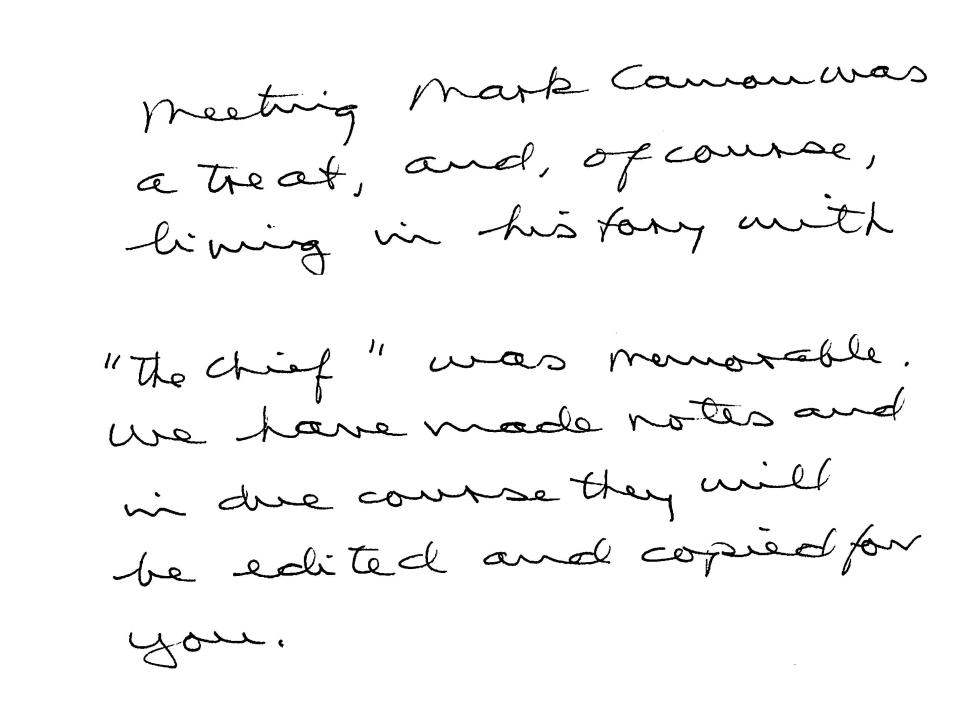 Meeting Mark Cannon was
a treat, and, of course,
living in history with
"The Chief" was memorable.
We have made notes and
in due course they will
be edited and copied for
you.